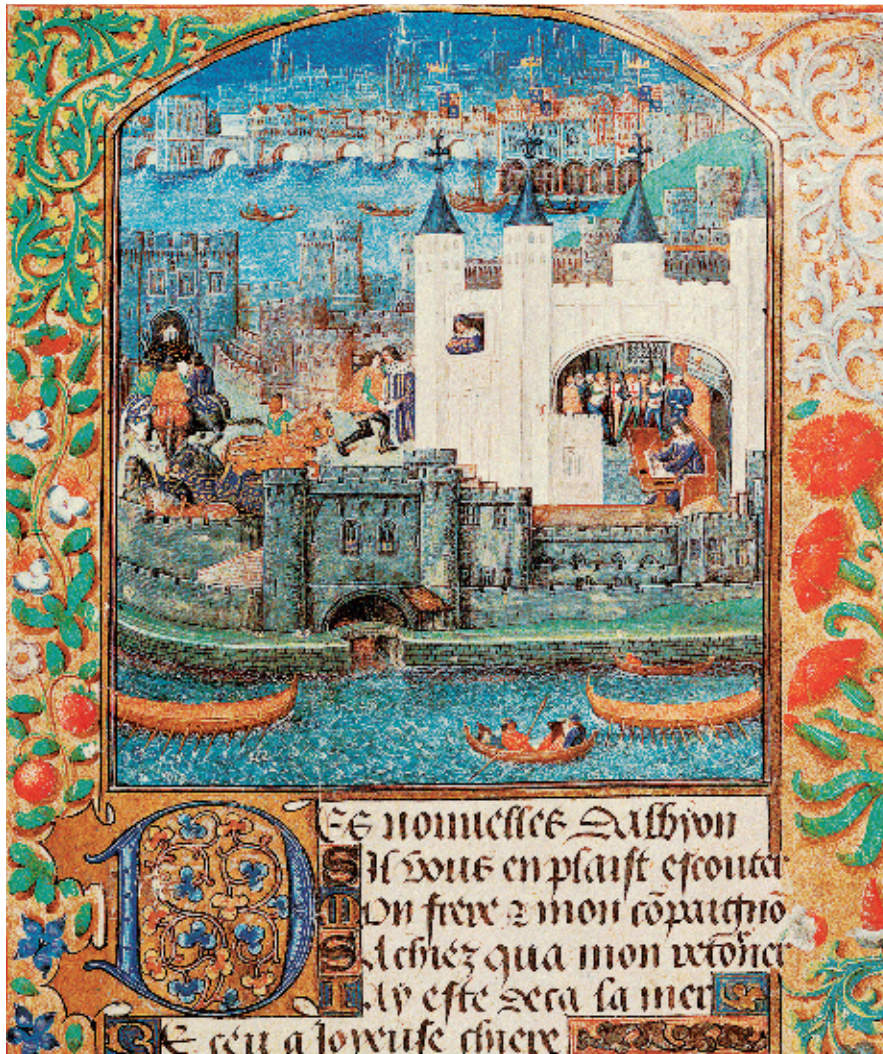 Des nouuelles dalbyon
Sil vous en plaist escouter
Mon frere & mon cōpaignō
Sachiez qua mon retōrner
Iay este deca la mer
Receu a joyeuse chiere